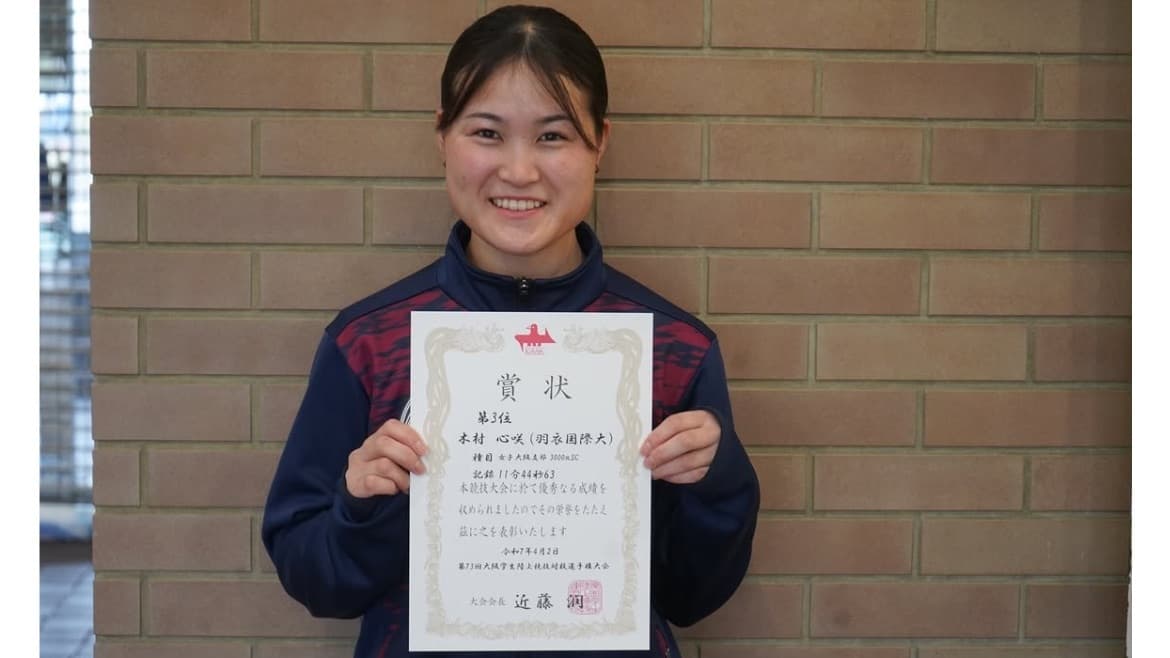 賞状
第3位
木村 心咲(羽衣国際大)
種目 女子大阪支部 3000mSC
記録 11分44秒63
本競技大会に於て優秀なる成績を
収められましたのでその栄誉をたたえ
茲に之を表彰いたします
令和7年4月2日
第73回大阪学生陸上競技対校選手権大会
大会会長 近藤 潤